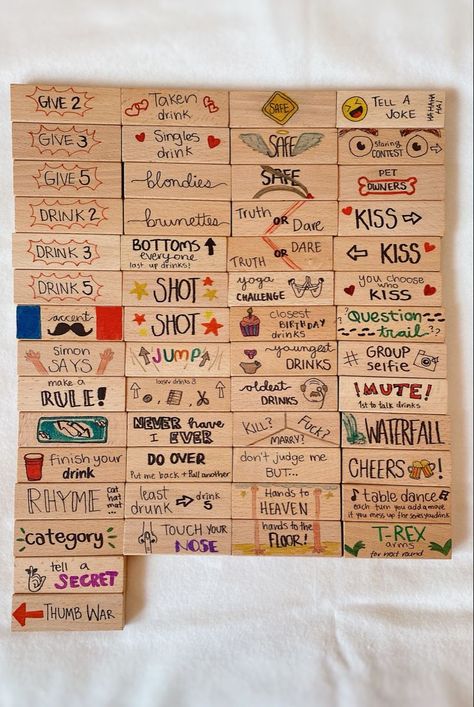 GIVE 2
GIVE 3
GIVE 5
DRINK 2
DRINK 3
DRINK 5
accent
SIMON
SAYS
make a
RULE!
finish your
drink
RHYME
cat
hat
mat
...
category
tell a
SECRET
THUMB WAR
Taken
drink
Singles
drink
blondies
brunettes
BOTTOMS
everyone
last up drinks!
SHOT
SHOT
JUMP!
loser drinks 3
NEVER have
I EVER
DO OVER
Put me back + Pull another
least
drunk
drink
5
TOUCH YOUR
NOSE
SAFE
SAFE
SAFE
Truth
OR
Dare
TRUTH OR DARE
yoga
CHALLENGE
closest
BIRTHDAY
drinks
youngest
DRINKS
oldest
DRINKS
KILL?
FUCK?
MARRY?
don't judge me
BUT...
Hands to
HEAVEN
hands to the
FLOOR!
TELL A
JOKE
HA HA HA
HA!
staring
CONTEST
PET
OWNERS
KISS
KISS
you choose
who
KISS
Question
trail
# GROUP
selfie
!MUTE!
1st to talk drinks
WATERFALL
CHEERS
table dance
each turn you add a move
if you mess up the series you drink
T-REX
arms
for next round